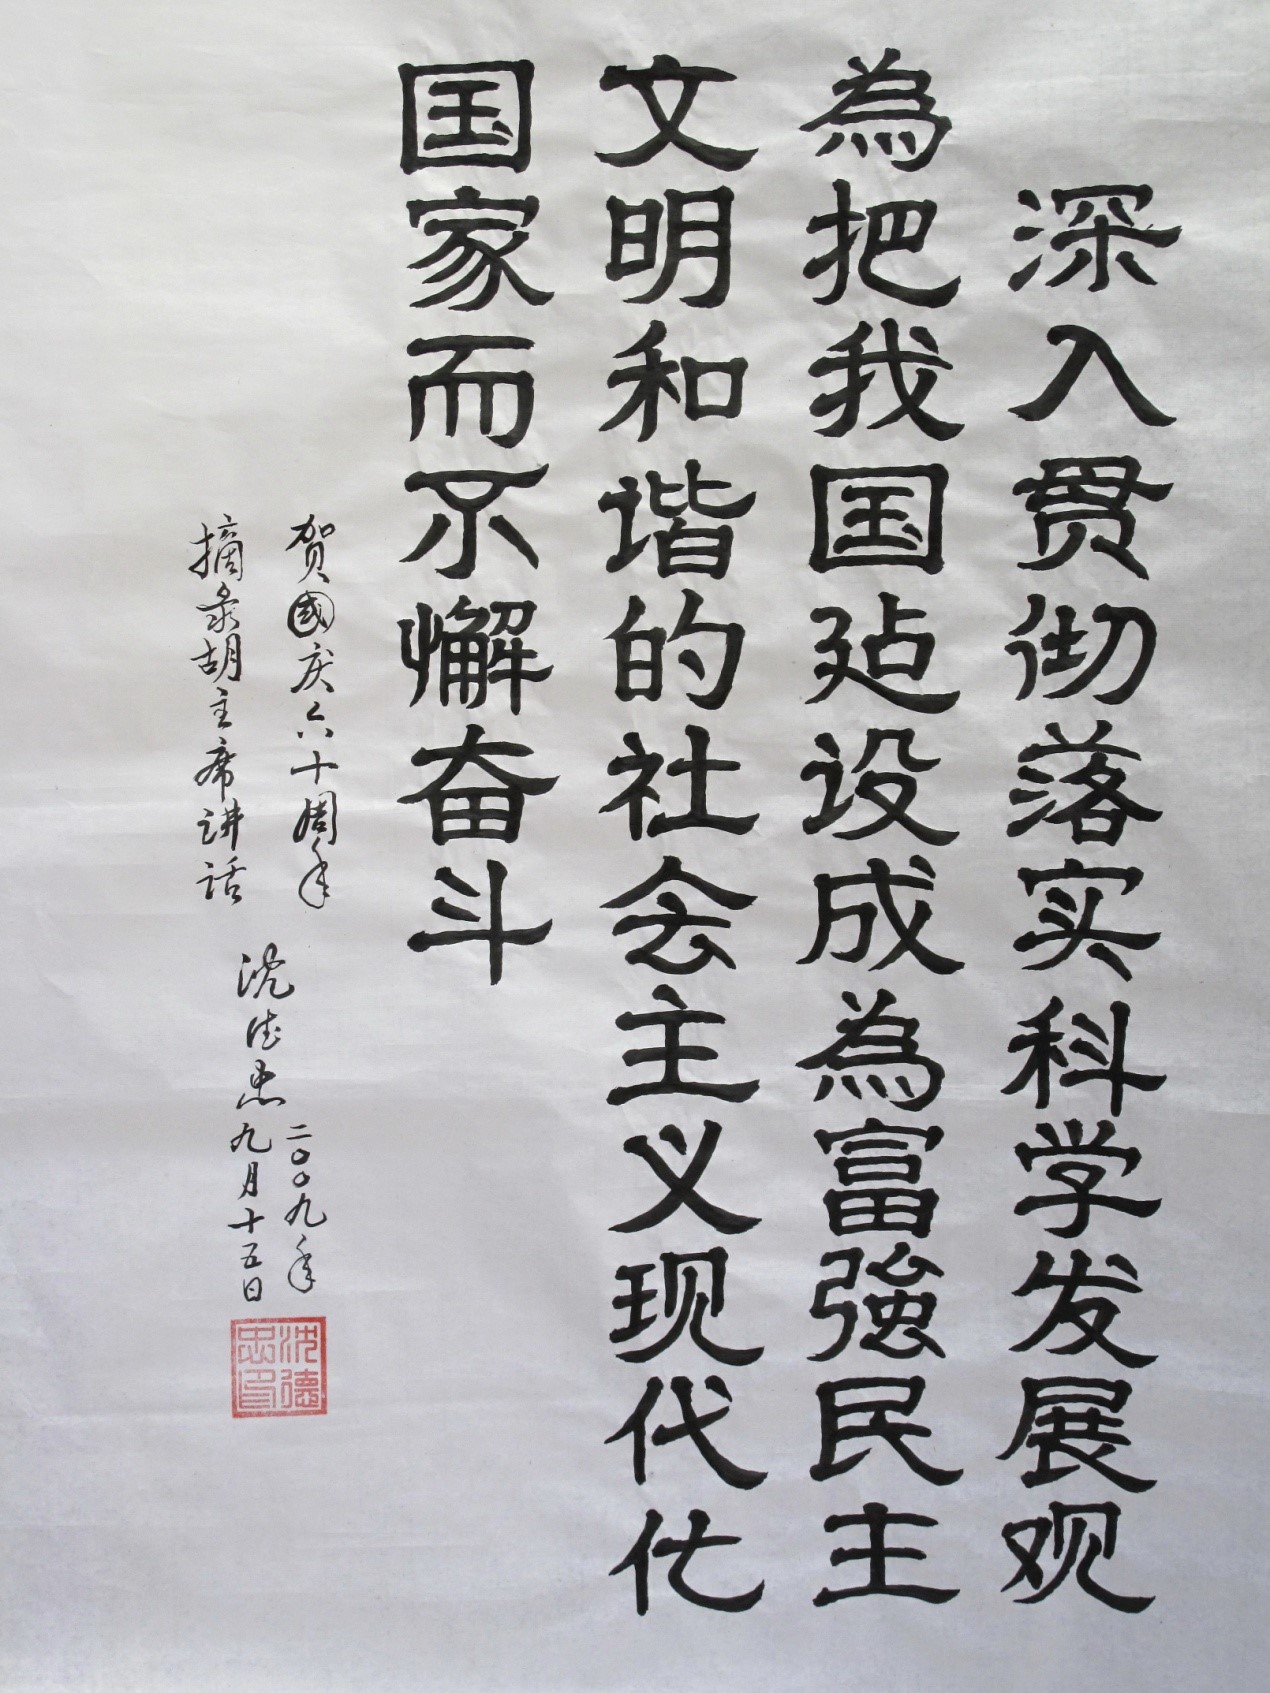 深入贯彻落实科学发展观
為把我国建设成為富強民主
文明和谐的社会主义现代化
国家而不懈奋斗
贺國庆六十周年
摘录胡主席讲话
沈德忠
二〇〇九年
九月十五日
沈德
忠印